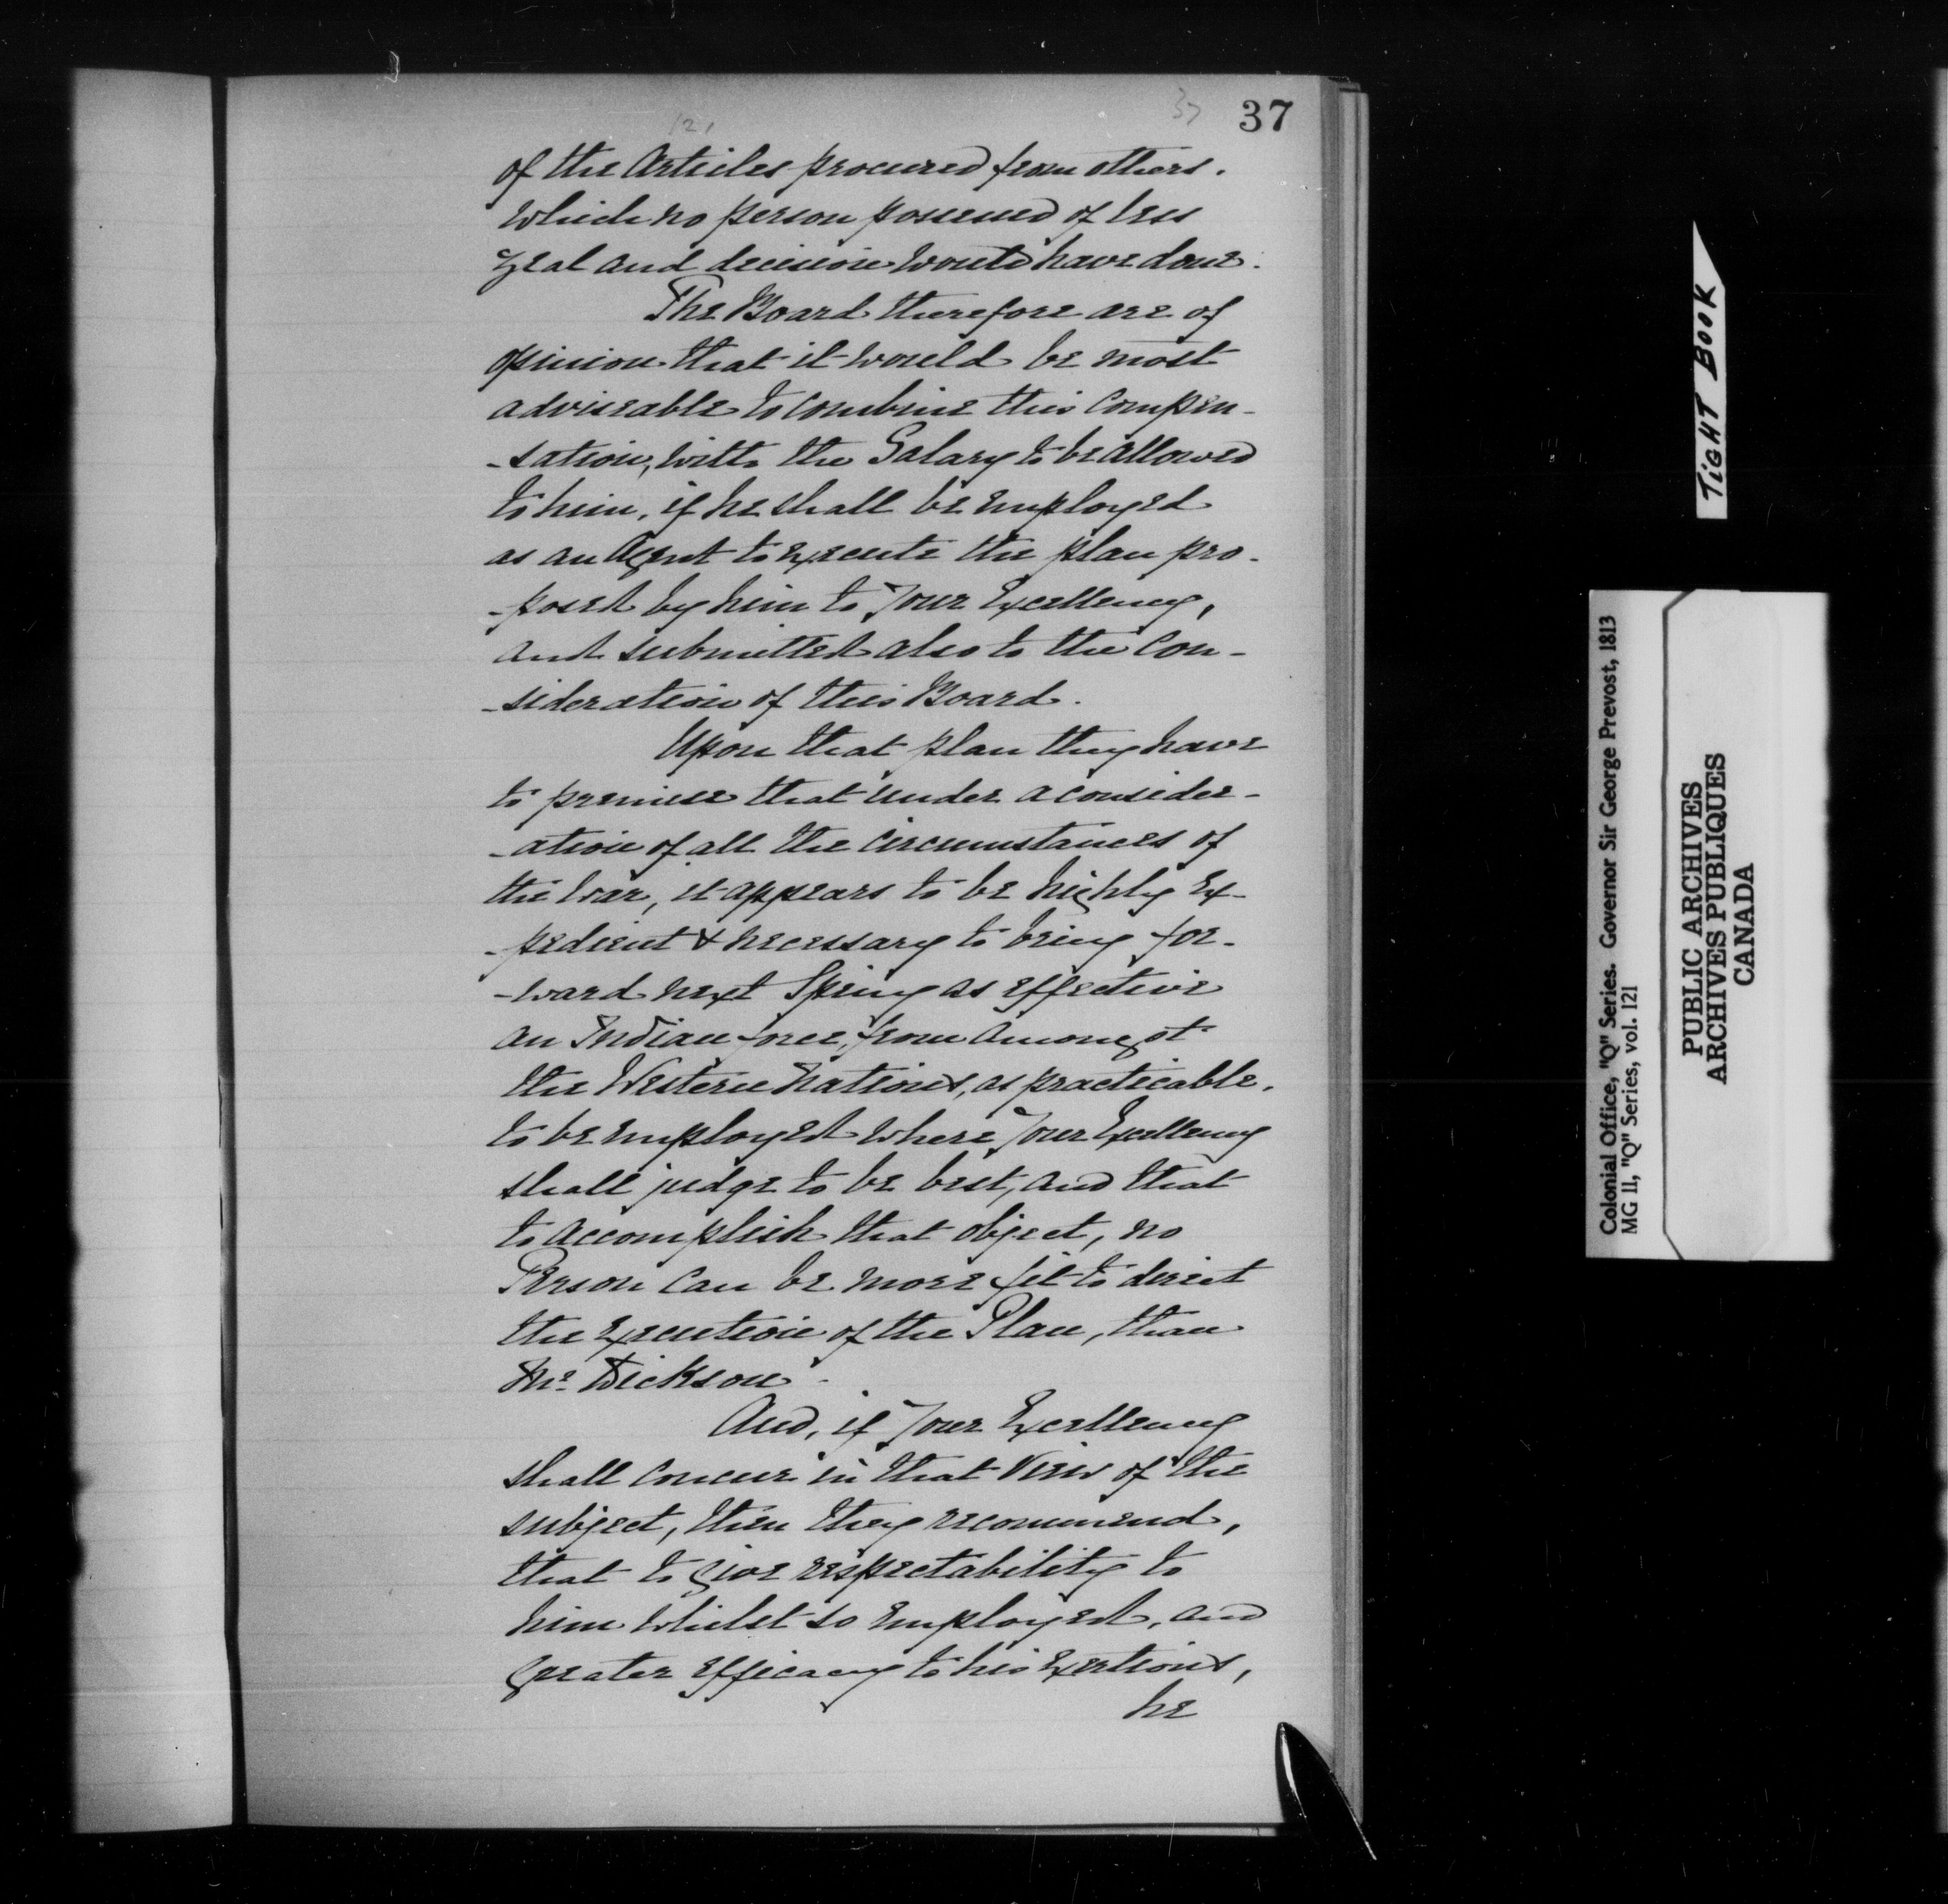 121
37
37
of the Articles procured from others.
which no person possessed of less
zeal and decision would have done.
The Board therefore are of
opinion that it would be most
adviseable to combine this compen-
-sation, with the Salary to be allowed
to him, if he shall be employed
as an Agent to execute the plan pro-
-posed by him to Your Excellency,
and submitted also to the Con-
-sideration of this Board.
Upon that plan they have
to premise that under a consider-
-ation of all the circumstances of
the war, it appears to be highly ex-
-pedient & necessary to bring for-
-ward next Spring as effective
an Indian force, from amongst
the Western Nations, as practicable.
to be employed where Your Excellency
shall judge to be best, and that
to accomplish that object, no
Person can be more fit to direct
the execution of the Plan, than
Mr. Dickson.
And, if Your Excellency
shall concur in that View of the
subject, then they recommend,
that to give respectability to
him whilst so employed, and
greater efficacy to his exertions,
he
TIGHT BOOK
Colonial Office, "Q" Series. Governor Sir George Prevost, 1813
MG 11, "Q" Series, vol. 121
PUBLIC ARCHIVES
ARCHIVES PUBLIQUES
CANADA